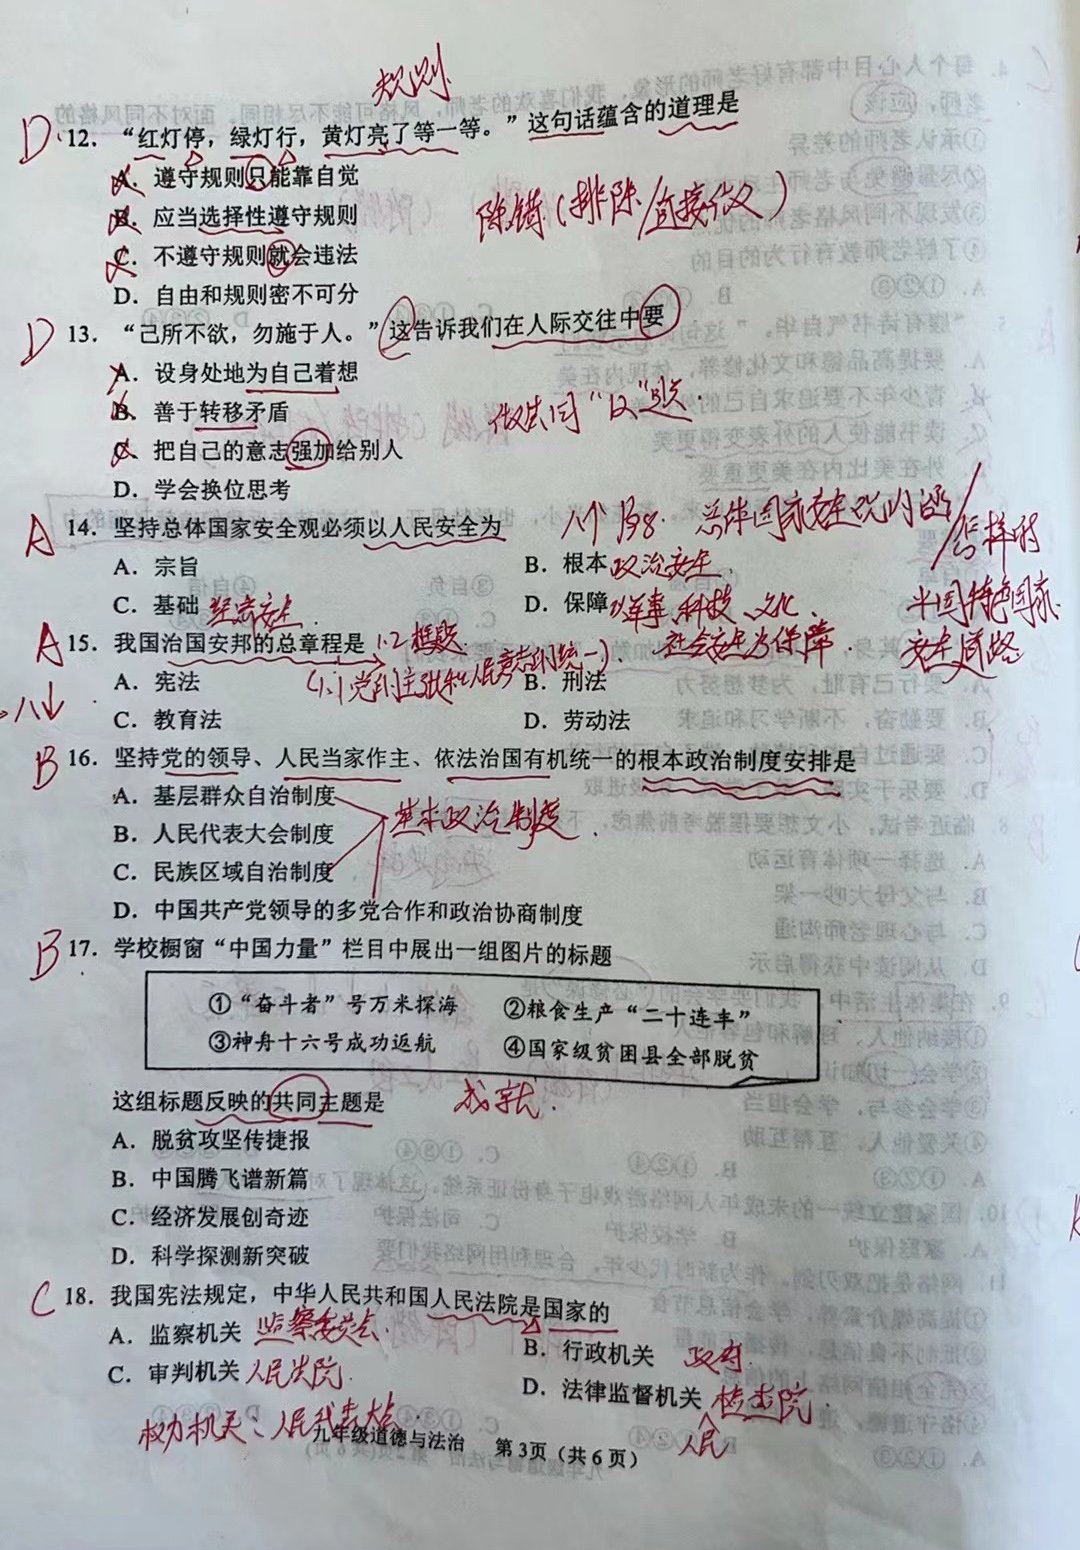 规则
D 12. “红灯停，绿灯行，黄灯亮了等一等。”这句话蕴含的道理是
A. 遵守规则只能靠自觉
B. 应当选择性遵守规则
除错（排除/直接行义）
C. 不遵守规则就会违法
D. 自由和规则密不可分
D 13. “己所不欲，勿施于人。”这告诉我们在人际交往中要
A. 设身处地为自己着想
B. 善于转移矛盾
C. 把自己的意志强加给别人
D. 学会换位思考
A 14. 坚持总体国家安全观必须以人民安全为
八个 P98. 总体国家安全观内涵/怎样时
A. 宗旨
B. 根本 政治安全
C. 基础 经济安全
D. 保障 以军事、科技、文化、社会安全为保障
中国特色国家安全道路
A 15. 我国治国安邦的总章程是 1.2 框题
A. 宪法
B. 刑法
C. 教育法
D. 劳动法
B 16. 坚持党的领导、人民当家作主、依法治国有机统一的根本政治制度安排是
A. 基层群众自治制度
基本政治制度
B. 人民代表大会制度
C. 民族区域自治制度
D. 中国共产党领导的多党合作和政治协商制度
B 17. 学校橱窗“中国力量”栏目中展出一组图片的标题
①“奋斗者”号万米探海 ②粮食生产“二十连丰”
③神舟十六号成功返航 ④国家级贫困县全部脱贫
这组标题反映的共同主题是 成就.
A. 脱贫攻坚传捷报
B. 中国腾飞谱新篇
C. 经济发展创奇迹
D. 科学探测新突破
C 18. 我国宪法规定，中华人民共和国人民法院是国家的
A. 监察机关 监察委员会.
B. 行政机关 政府.
C. 审判机关 人民法院.
D. 法律监督机关 人民检察院.
权力机关：人民代表大会.
九年级道德与法治 第3页（共6页）